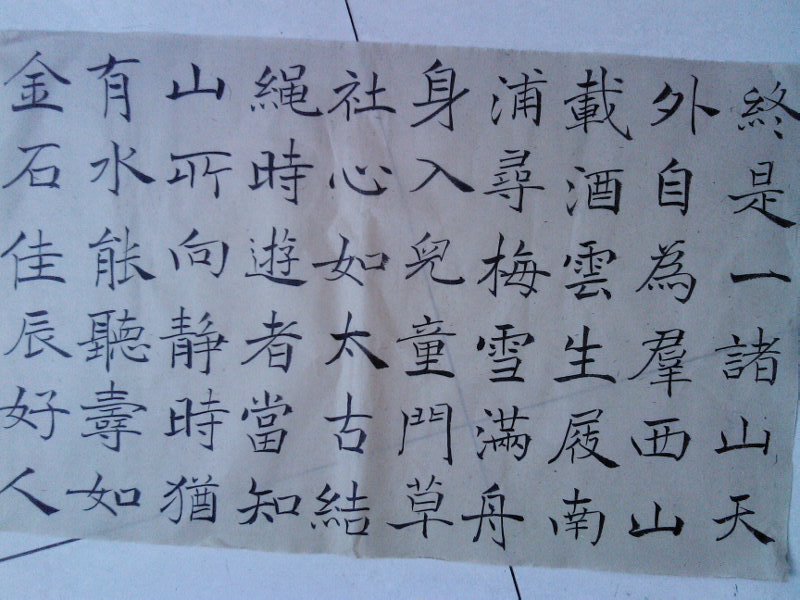 終是一諸山天
外自為羣西山
載酒雲生屐南
浦尋梅雪滿舟
身入兒童門草
社心如太古結
繩時遊者當知
山所向静時猶
有水能聽壽如
金石佳辰好人